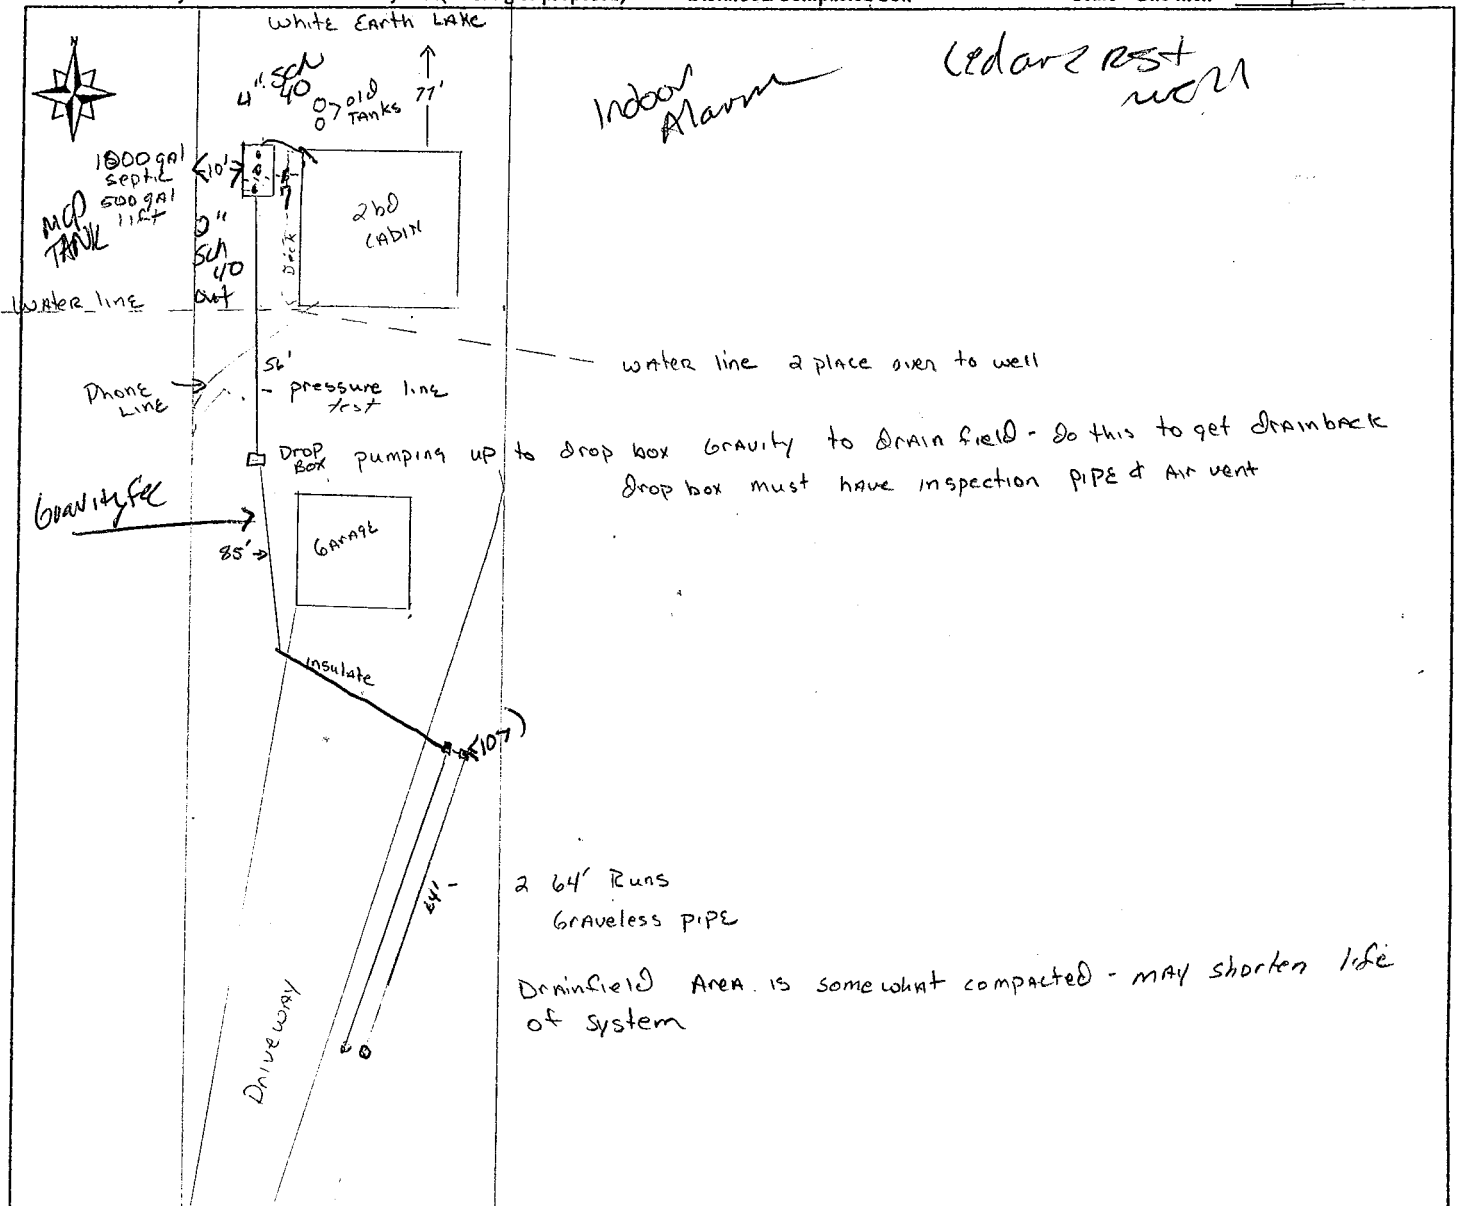 White Earth Lake
N
4" Sch
40
old
Tanks
77'
Indoor
Alarm
Cedarcrest
well
1000 gal
septic
500 gal
lift
<10'>
MCD
TANK
Sch
40
out
Deck
2 bd
Cabin
Water line
water line 2 place over to well
56'
Phone
Line
pressure line
test
Drop
Box
pumping up to drop box Gravity to drain field - do this to get drainback
drop box must have inspection pipe & Air vent
Gravity
85'
Garage
insulate
<10>
64'
2 64' Runs
Graveless pipe
Drainfield Area is somewhat compacted - may shorten life
of system
Driveway